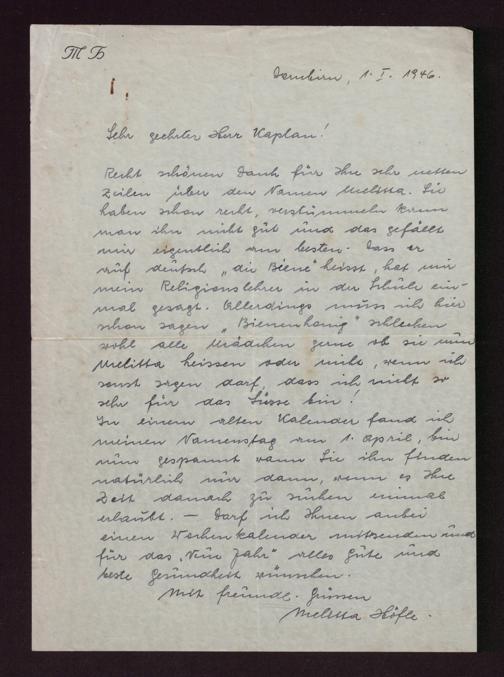 MB
Dornbirn, 1. I. 1946.
Sehr geehrter Herr Kaplan!
Recht schönen Dank für Ihre sehr netten
Zeilen über den Namen Melitta. Sie
haben schon recht, verstümmeln kann
man ihn nicht gut und das gefällt
mir eigentlich am besten. Dass er
auf deutsch „die Biene" heisst, hat mir
mein Religionslehrer in der Schule ein-
mal gesagt. Allerdings muss ich hier
schon sagen, „Bienenhonig" schlecken
wohl alle Mädchen gerne ob sie nun
Melitta heissen oder nicht, wenn ich
sonst sagen darf, dass ich nicht so
sehr für das Süsse bin!
In einem alten Kalender fand ich
meinen Namenstag am 1. April, bin
nun gespannt wann Sie ihn finden
natürlich nur dann, wenn es Ihre
Zeit danach zu suchen einmal
erlaubt. — Darf ich Ihnen anbei
einen Wochenkalender mitsenden und
für das „Neue Jahr" alles Gute und
beste Gesundheit wünschen.
Mit freundl. Grüssen
Melitta Höfle.